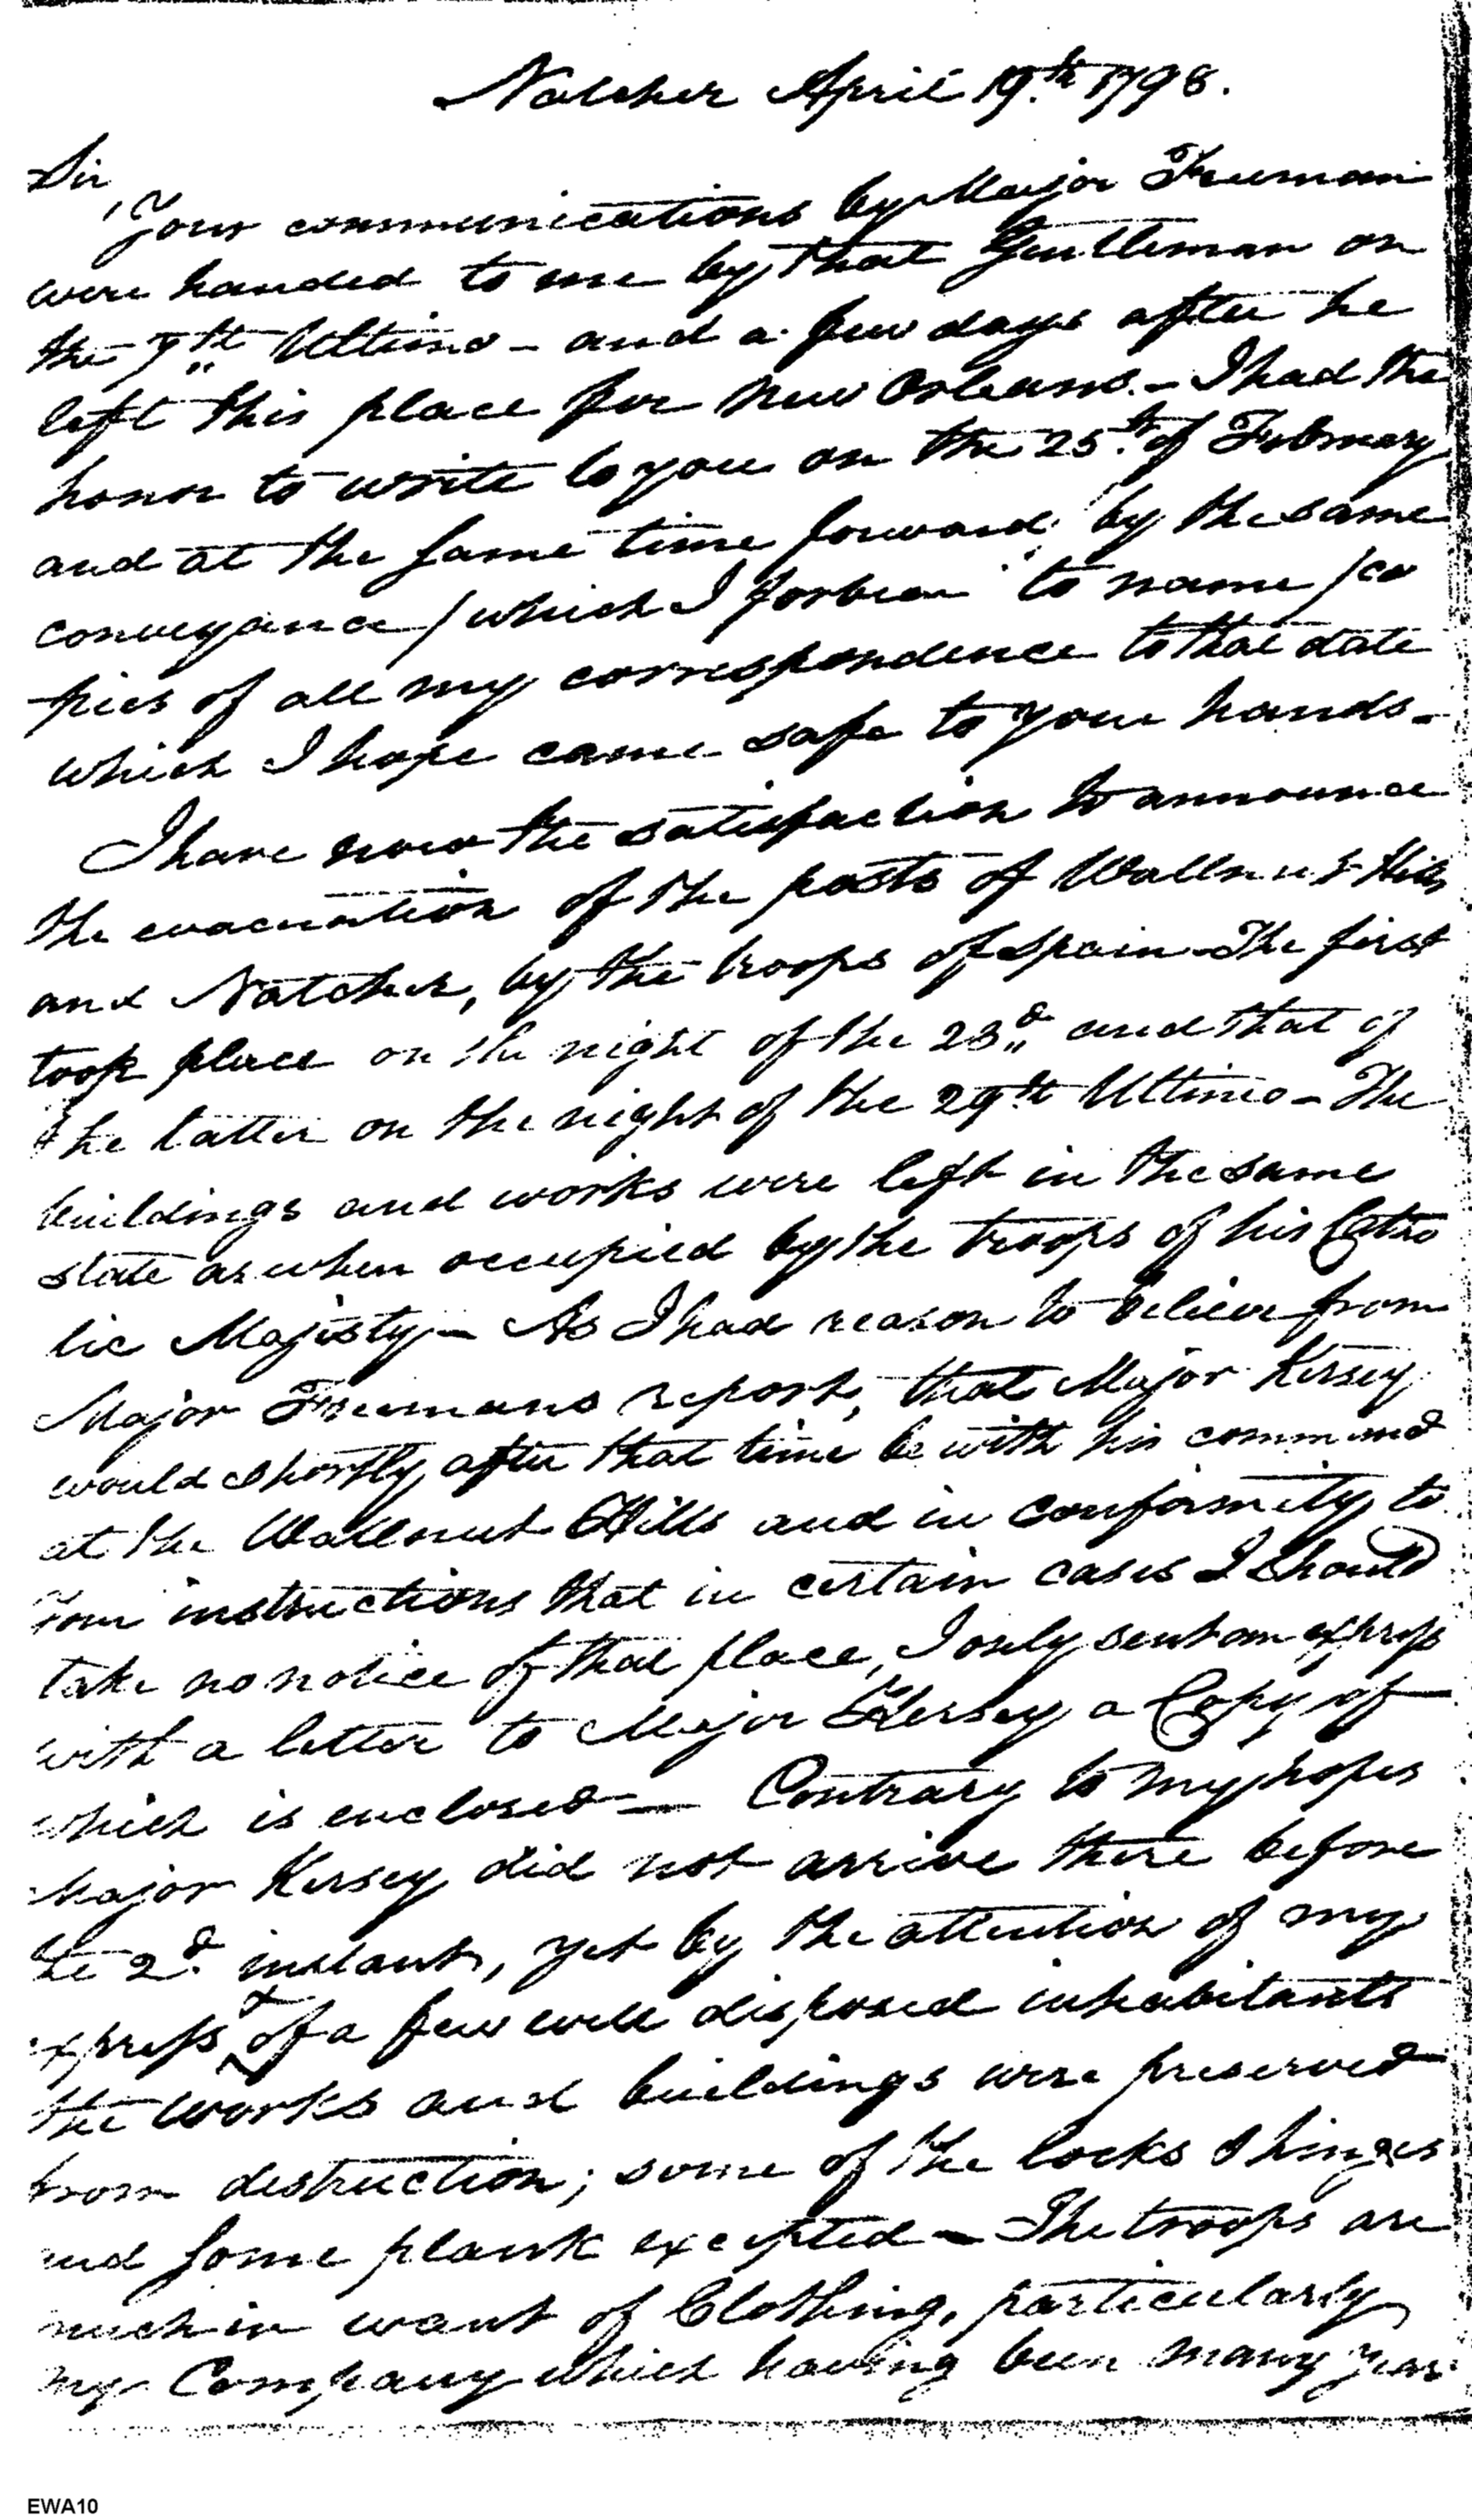 Natchez April 19th 1798.
Sir,
Your communications by Major Freeman
were handed to me by that Gentleman on
the 7th Ultimo - and a few days after he
left this place for New Orleans. - I had the
honor to write to you on the 25th of February
and at the same time forward by the same
conveyance / which I forbear to name / co
pies of all my correspondence to that date
which I hope came safe to your hands. -
I have now the satisfaction to announce
the evacuation of the posts of Wallnut Hills
and Natchez, by the troops of Spain - The first
took place on the night of the 23d and that of
the latter on the night of the 29th Ultimo - The
buildings and works were left in the same
state as when occupied by the troops of his Catho
lic Majesty - As I had reason to believe from
Major Freemans report, that Major Kersey
would shortly after that time be with his command
at the Wallnut Hills and in conformity to
Your instructions that in certain cases I should
take no notice of that place, I only sent an express
with a letter to Major Kersey a Copy of
which is enclosed - Contrary to my hopes
Major Kersey did not arrive there before
the 2d instant, yet by the attention of my
express & of a few well disposed inhabitants
the works and buildings were preserved
from distruction; some of the locks & hinges
and some plank excepted - The troops are
much in want of Clothing, particularly
my Company which having been many years
EWA10